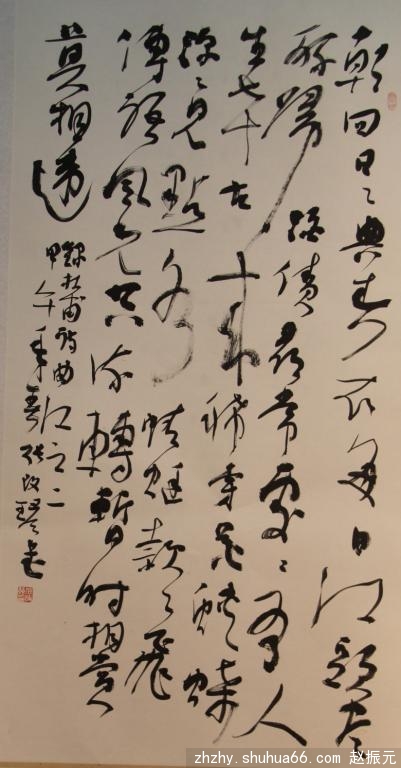 朝回日〻典春衣每日江頭尽
醉歸酒債尋常處〻有人
生七十古来稀穿花蛺蝶
深〻見點水蜻蜓款〻飛
傳語風光共流轉暫時相賞
莫相違
録杜甫詩曲江之二
甲午年春張改琴書
zhzhy.shuhua66.com 赵振元